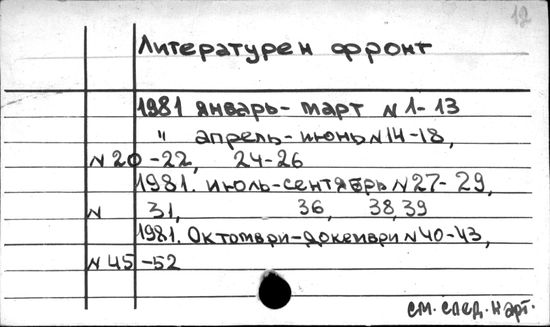 12
Литературен фронт
1981 январь-март N 1-13
" апрель-июнь N 14-18,
N 20-22, 24-26
1981. июль-сентябрь N 27-29,
N 31, 36, 38, 39
1981. Октомври-докември N 40-43,
N 45-52
см. след. карт.